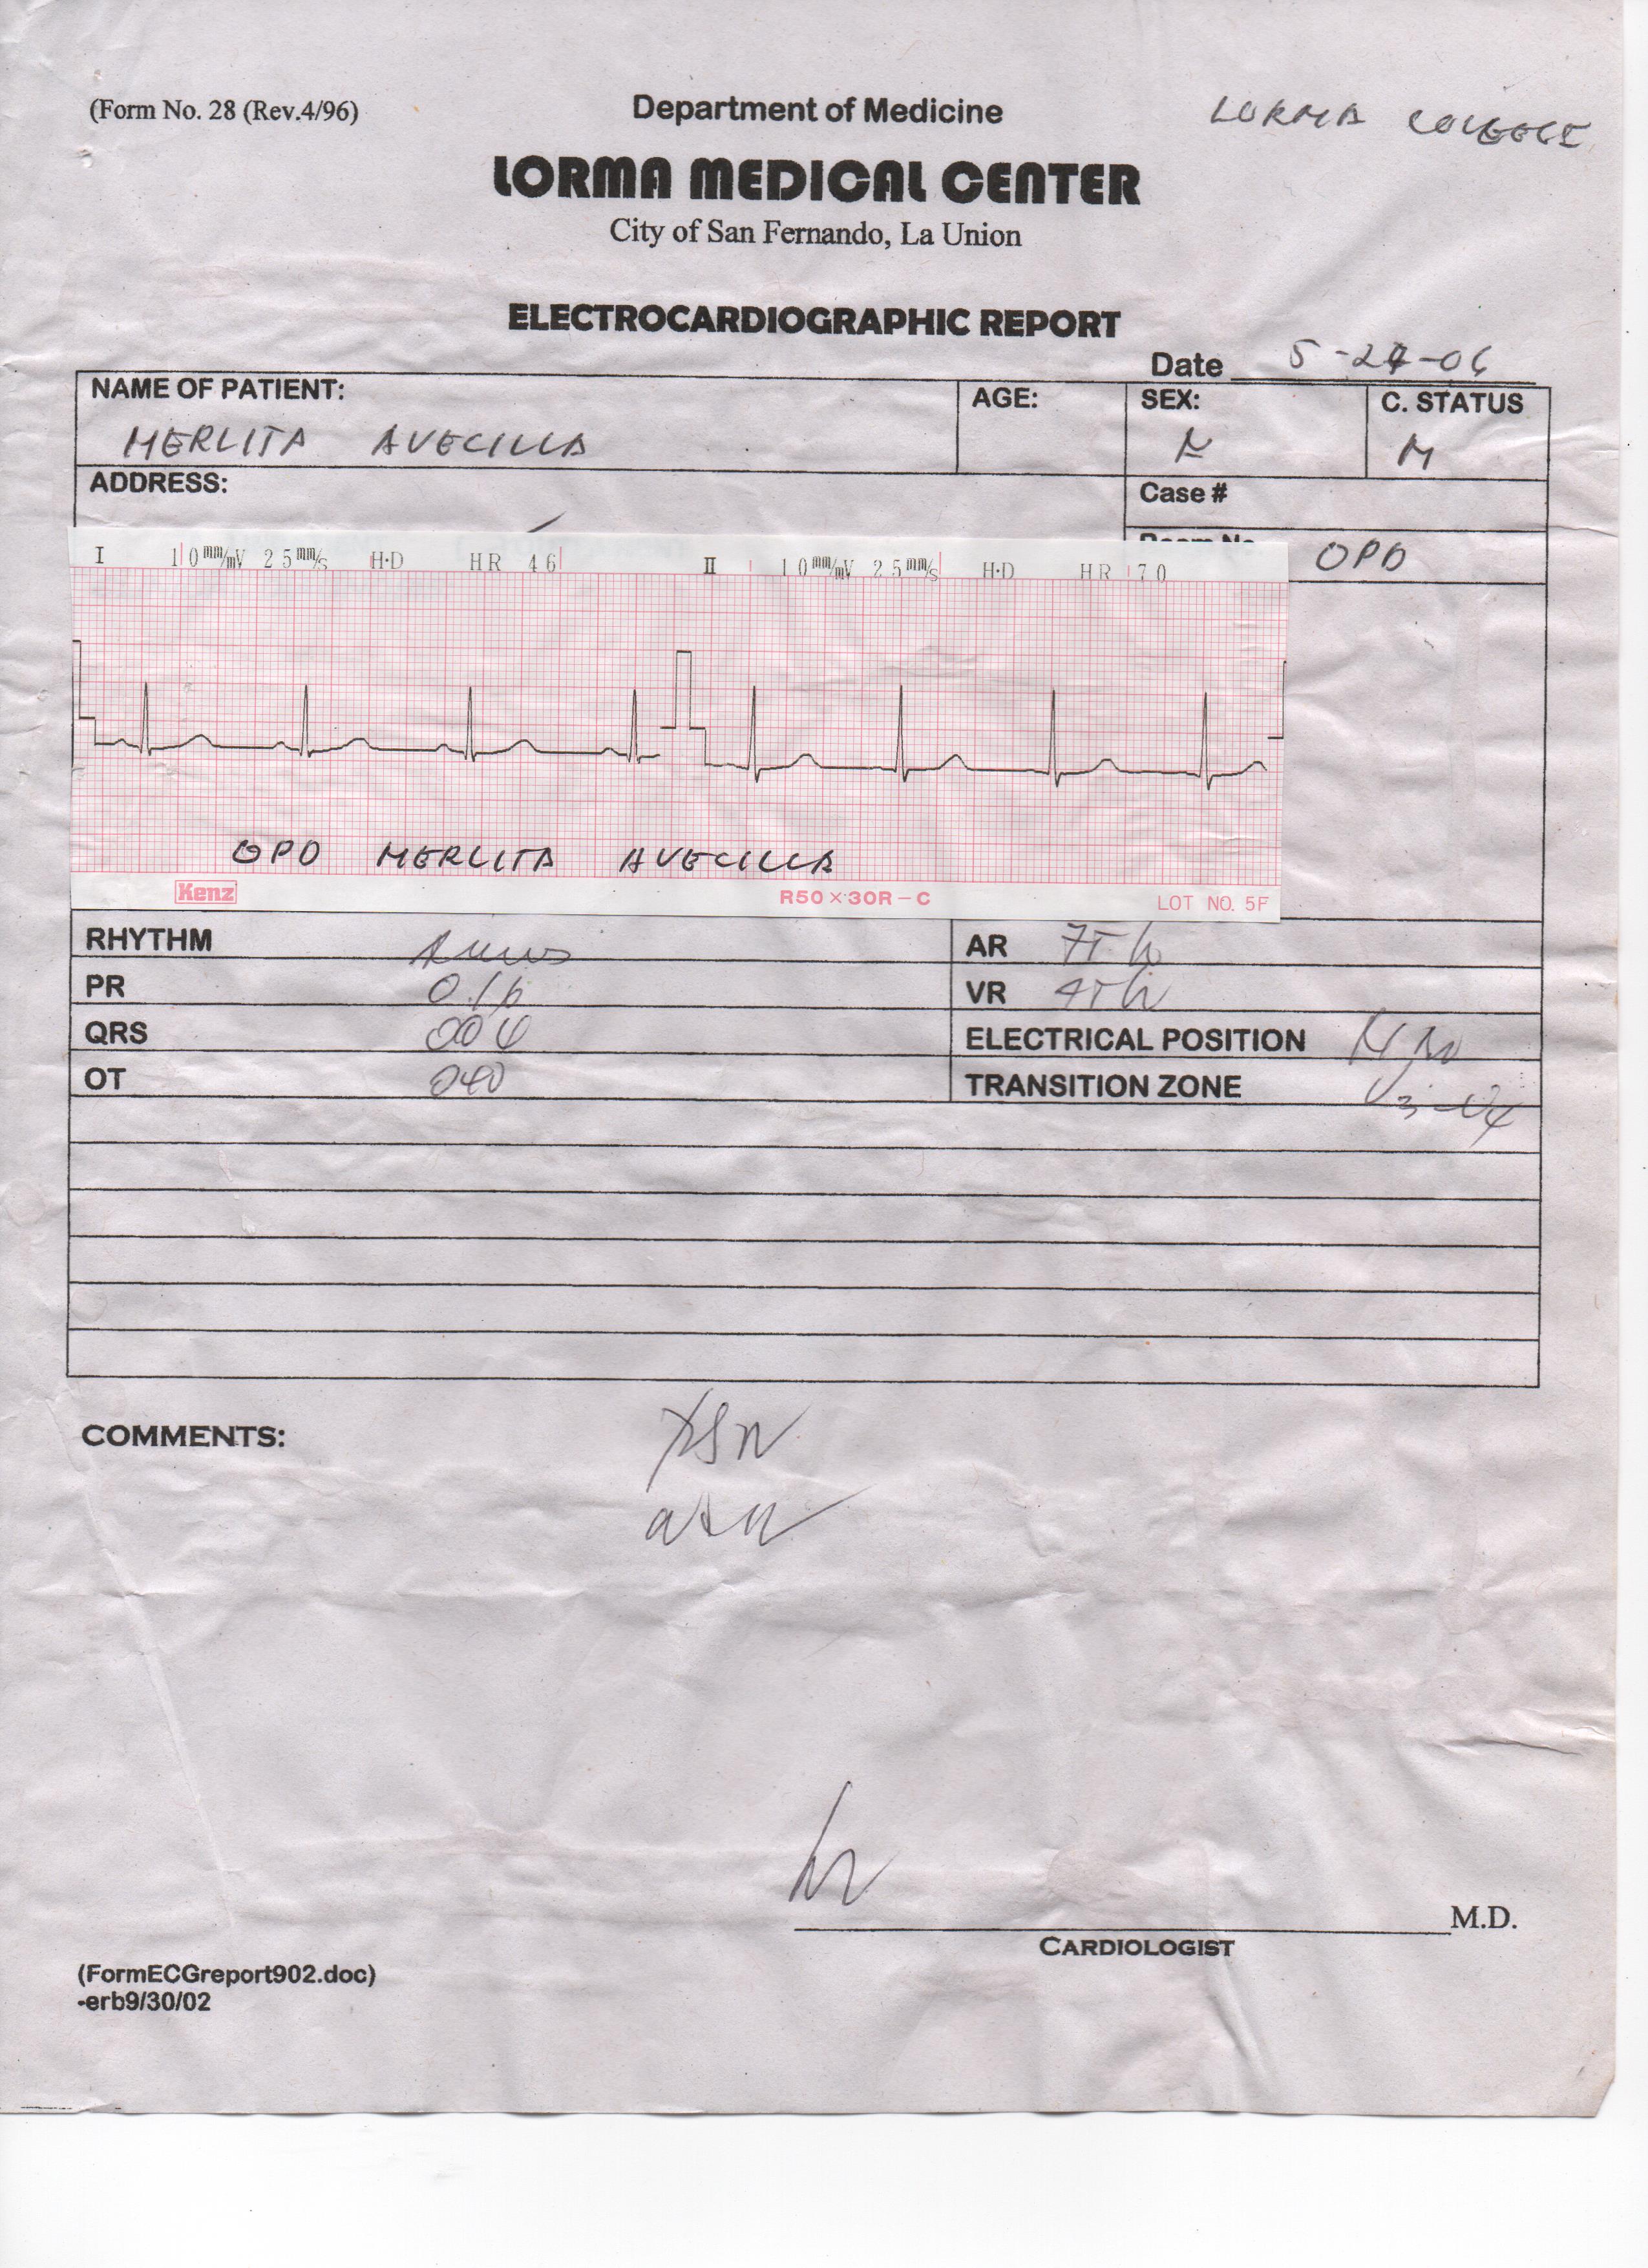 (Form No. 28 (Rev.4/96)
Department of Medicine
LORMA COLLEGE
LORMA MEDICAL CENTER
City of San Fernando, La Union
ELECTROCARDIOGRAPHIC REPORT
Date 5-24-06
NAME OF PATIENT: AGE: SEX: C. STATUS
MERLITA AVECILLA M
ADDRESS: Case #
Room No. OPD
I 10mm/mV 25mm/s H·D HR 46 II 10mm/mV 25mm/s H·D HR 70
OPD MERLITA AVECILLA
Kenz R50×30R-C LOT NO. 5F
RHYTHM Sinus AR 75
PR 0.16 VR 75
QRS ELECTRICAL POSITION
OT 040 TRANSITION ZONE V3-V4
COMMENTS:
M.D.
CARDIOLOGIST
(FormECGreport902.doc)
-erb9/30/02